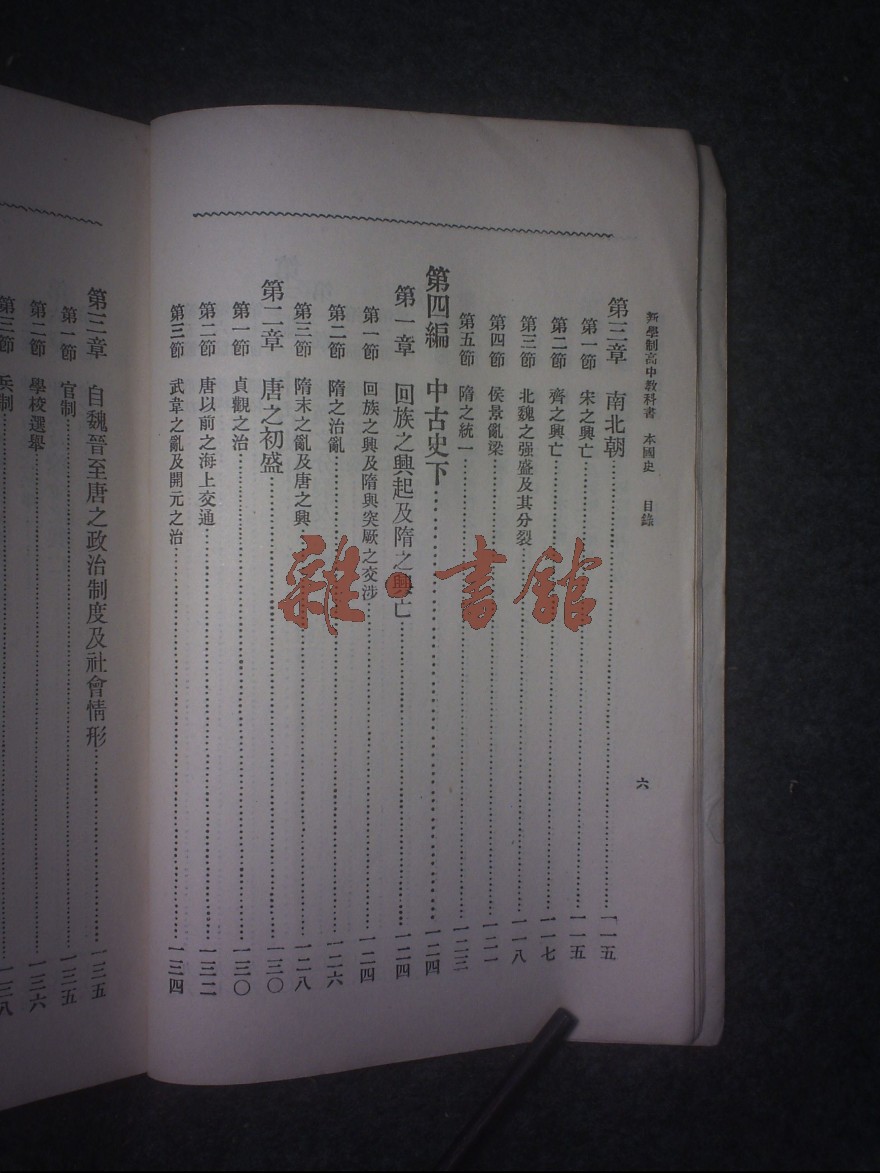 新學制高中教科書 本國史 目錄 六
第三章 南北朝 一一五
第一節 宋之興亡 一一五
第二節 齊之興亡 一一七
第三節 北魏之强盛及其分裂 一一八
第四節 侯景亂梁 一二一
第五節 隋之統一 一二三
第四編 中古史下 一二四
第一章 回族之興起及隋之興亡 一二四
第一節 回族之興及隋與突厥之交涉 一二四
第二節 隋之治亂 一二六
第三節 隋末之亂及唐之興 一二八
第二章 唐之初盛 一三〇
第一節 貞觀之治 一三〇
第二節 唐以前之海上交通 一三二
第三節 武韋之亂及開元之治 一三四
第三章 自魏晉至唐之政治制度及社會情形 一三五
第一節 官制 一三五
第二節 學校選舉 一三六
第三節 兵制 一三八
雜·書館